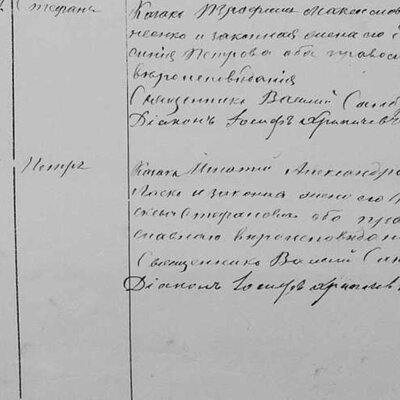 Стефанъ
Козакъ Трофимъ Максимов
неенко и законная жена его
синія Петрова оба правос
вѣроисповѣданія
Священникъ Василій Сам
Діаконъ Іосифъ
Петръ
Козакъ Игнатій Александро
Ласко и законная жена его
Стефанова оба пра
славнаго вѣроисповѣдан
Священникъ Василій Сам
Діаконъ Іосифъ